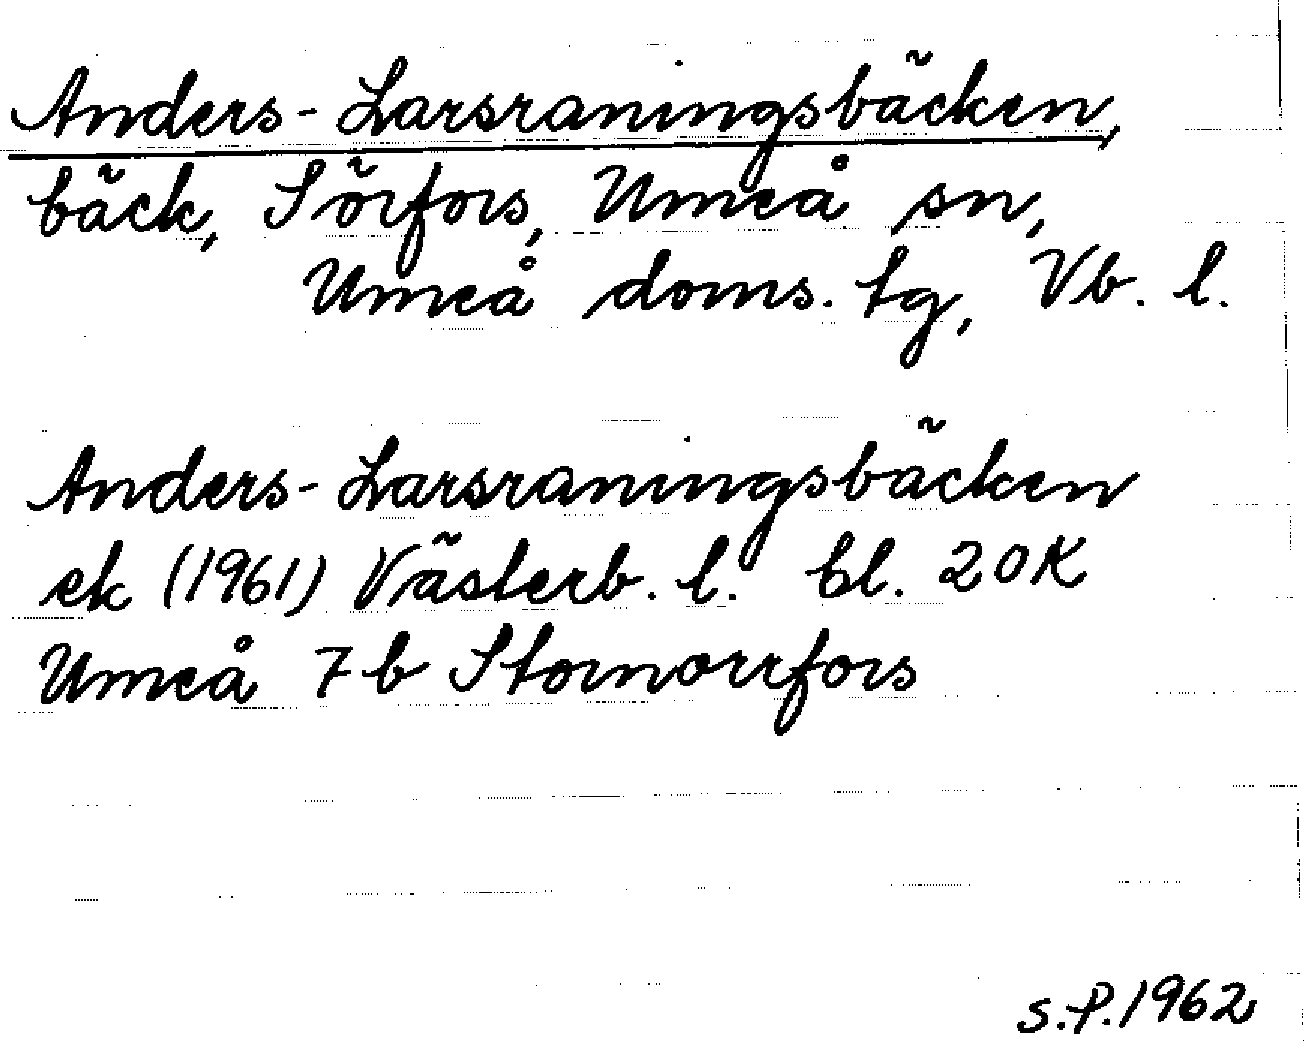 Anders-Larsraningsbäcken,
bäck, Sörfors, Umeå sn,
Umeå doms. tg, Vb. l.
Anders-Larsraningsbäcken
ek (1961) Västerb. l. bl. 20K
Umeå 7b Stornorrfors
S.P. 1962